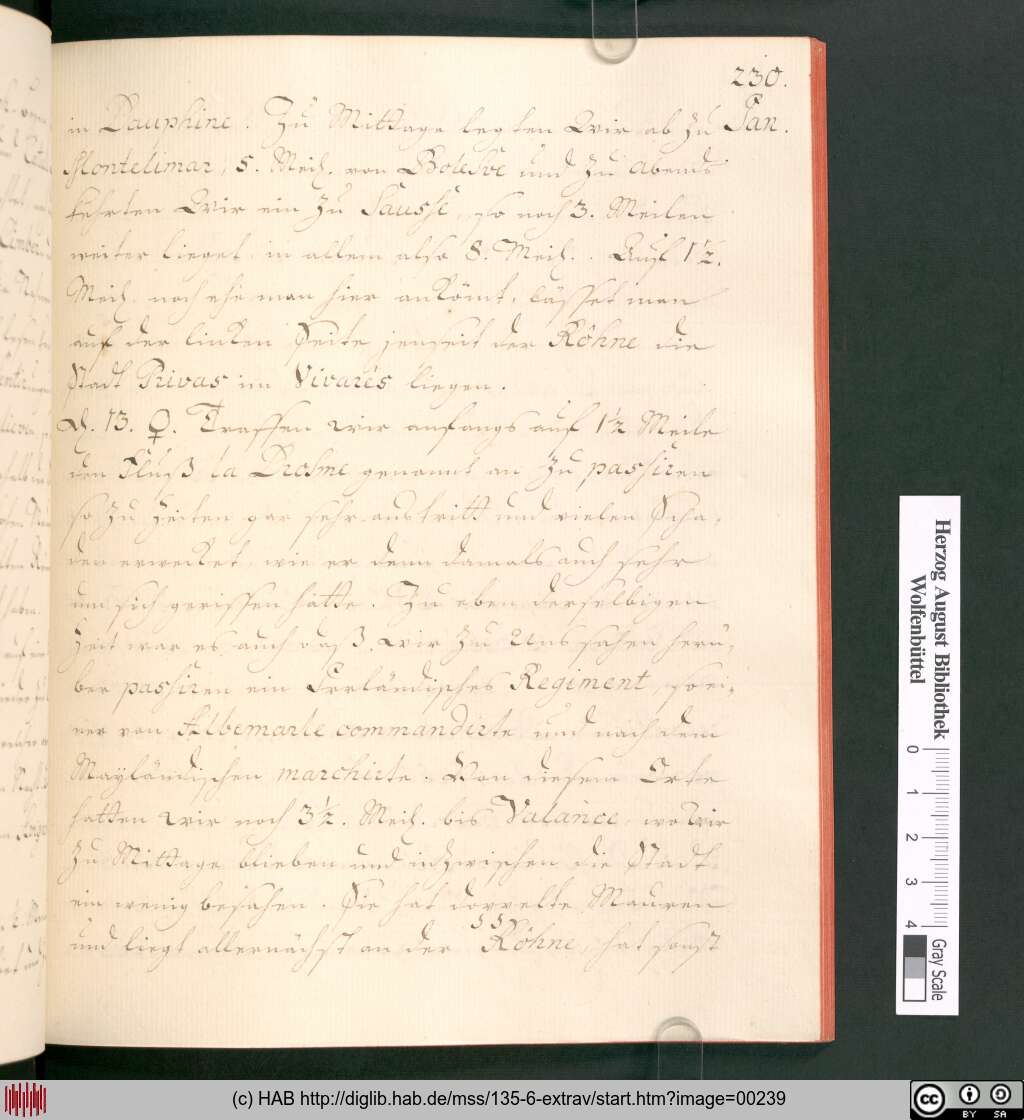 230.
in Dauphine. Zu Mittage legten Wir ab zu Pan.
Montelimar, 5. Meil. von Bolesve und zu Abends
kehrten Wir ein zu Sausse, so noch 3. Meilen
weiter lieget, in allem also 8. Meil. Auf 1½.
Meil. noch ehe man hier ankömt, lässet man
auf der linken Seite jenseit der Röhne die
Stadt Privas im Vivares liegen.
D. 13. ♀. Traffen wir anfangs auf 1½ Meile
den Fluß la Drosme genannt an zu passiren
so zu Zeiten gar sehr austritt und vielen Scha-
den erwecket, wie er denn damals auch sehr
um sich gerissen hatte. Zu eben derselbigen
Zeit war es auch daß Wir zu Uns sahen herü-
ber passiren ein Irrländisches Regiment, so ei-
ner von Albemarle commandirte und nach dem
Mayländischen marchirte. Von diesem Orte
hatten Wir noch 3½. Meil. bis Valance, wo Wir
zu Mittage blieben und indzwischen die Stadt
ein wenig besahen. Sie hat doppelte Mauren
und liegt allernächst an der Röhne, hat sonst
Herzog August Bibliothek
Wolfenbüttel
0 1 2 3 4
Gray Scale
(c) HAB http://diglib.hab.de/mss/135-6-extrav/start.htm?image=00239
cc BY SA